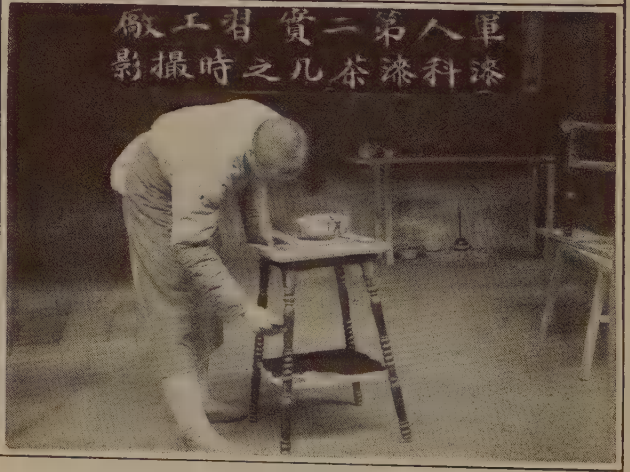 軍人第二實習工廠
漆科漆茶几之時撮影